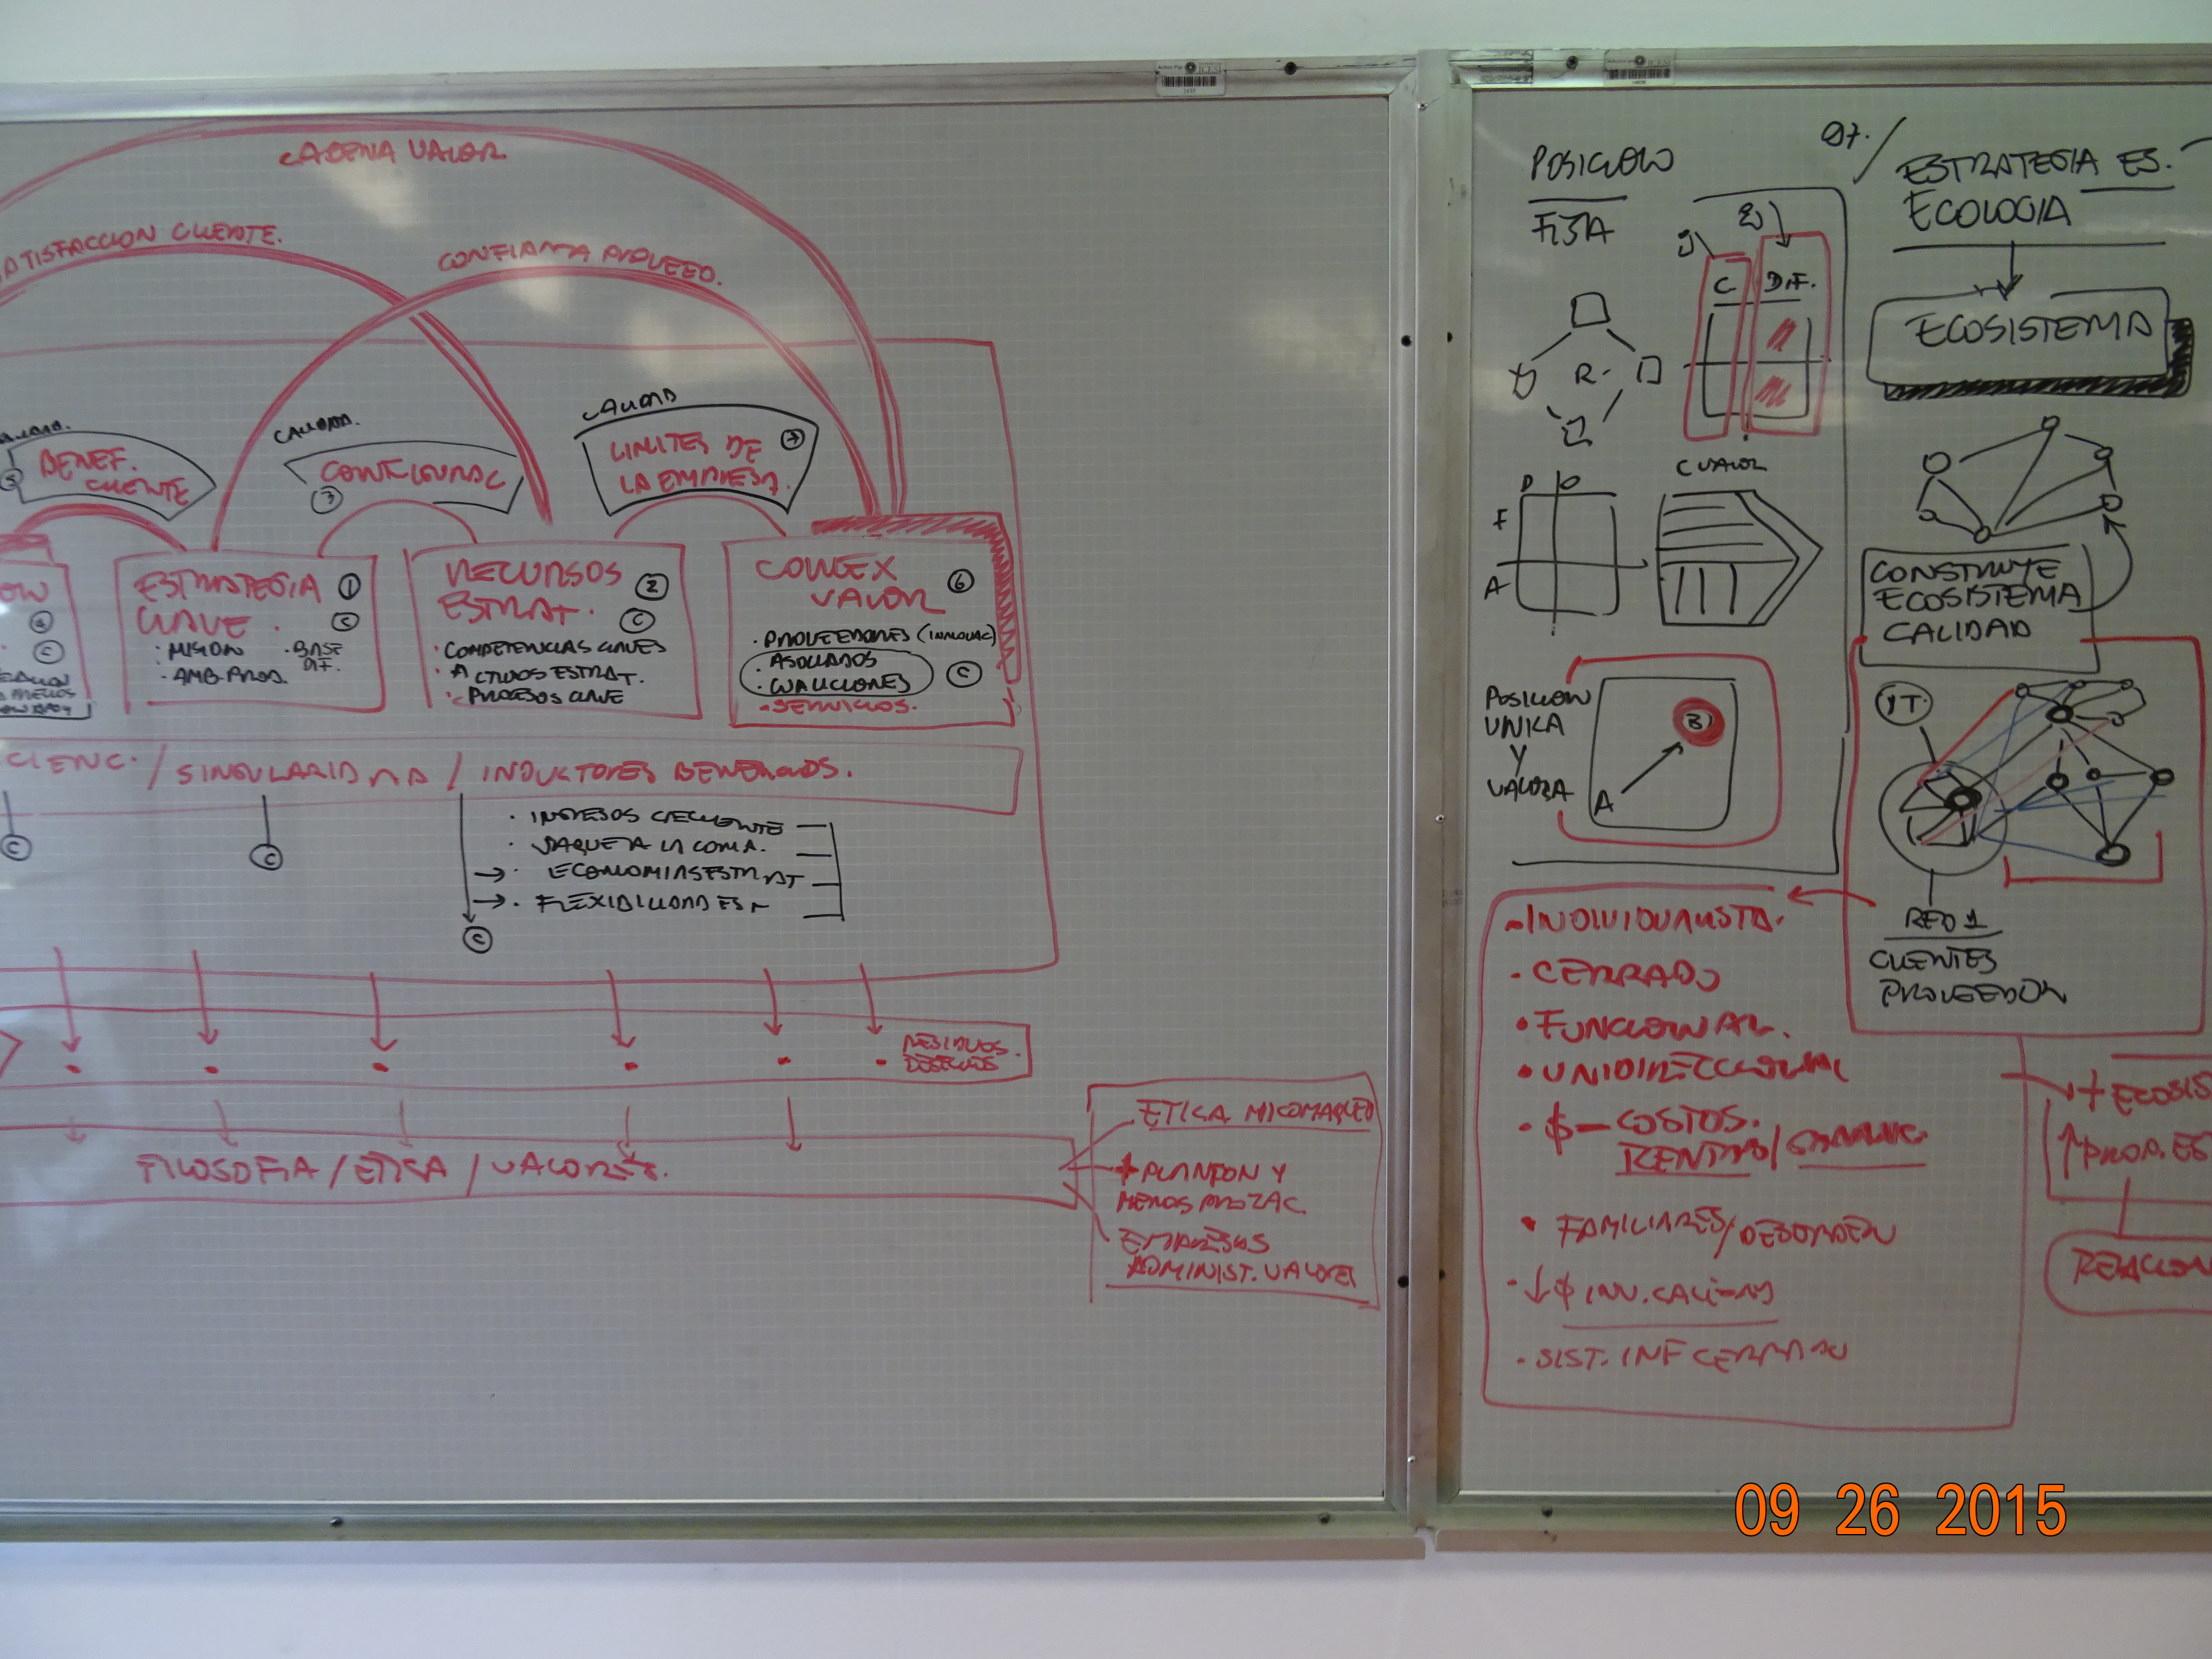 CADENA VALOR
SATISFACCION CLIENTE.
CONFIANZA PROVEED.
CALIDAD.
BENEF.
CLIENTE
CALIDAD.
CONFIGURAC
3
CALIDAD
LIMITES DE
LA EMPRESA.
7
ESTRATEGIA 1
CLAVE. C
· MISION · BASE
DIF.
· AMB. PROD.
RECURSOS 2
ESTRAT. C
· COMPETENCIAS CLAVES
· ACTIVOS ESTRAT.
· PROCESOS CLAVE
CONEX 6
VALOR
· PROVEEDORES (INNOVAC)
· ASOCIADOS C
· COALICIONES
- SERVICIOS.
CIENC. / SINGULARIDAD / INDUCTORES BENEFICIOS.
C
C
· INGRESOS CRECIENTE
→ · ECONOMIAS ESTRAT
→ · FLEXIBILIDAD EST
C
RESIDUOS.
DESECHOS
FILOSOFIA / ETICA / VALORES.
ETICA NICOMAQUEO
+ PLANTON Y
MENOS PROZAC
EMPRESAS
ADMINIST. VALORES
POSICION
FIJA
C. DIF.
R.
C VALOR
D O
F
A
POSICION
UNICA
Y
VALORA
B
A
07. /
ESTRATEGIA ES.
ECOLOGIA
ECOSISTEMA
CONSTRUYE
ECOSISTEMA
CALIDAD
RED 1
CLIENTES
PROVEEDOR
- INDIVIDUALISTA.
· CERRADO
· FUNCIONAL.
· UNIDIRECCIONAL
· $ - COSTOS.
· FAMILIARES / DESORDEN
· ↓ $ INV. CALI-
· SIST. INF CERRADO
+ ECOSIS
↑ PROD. ES
RELACION
09 26 2015